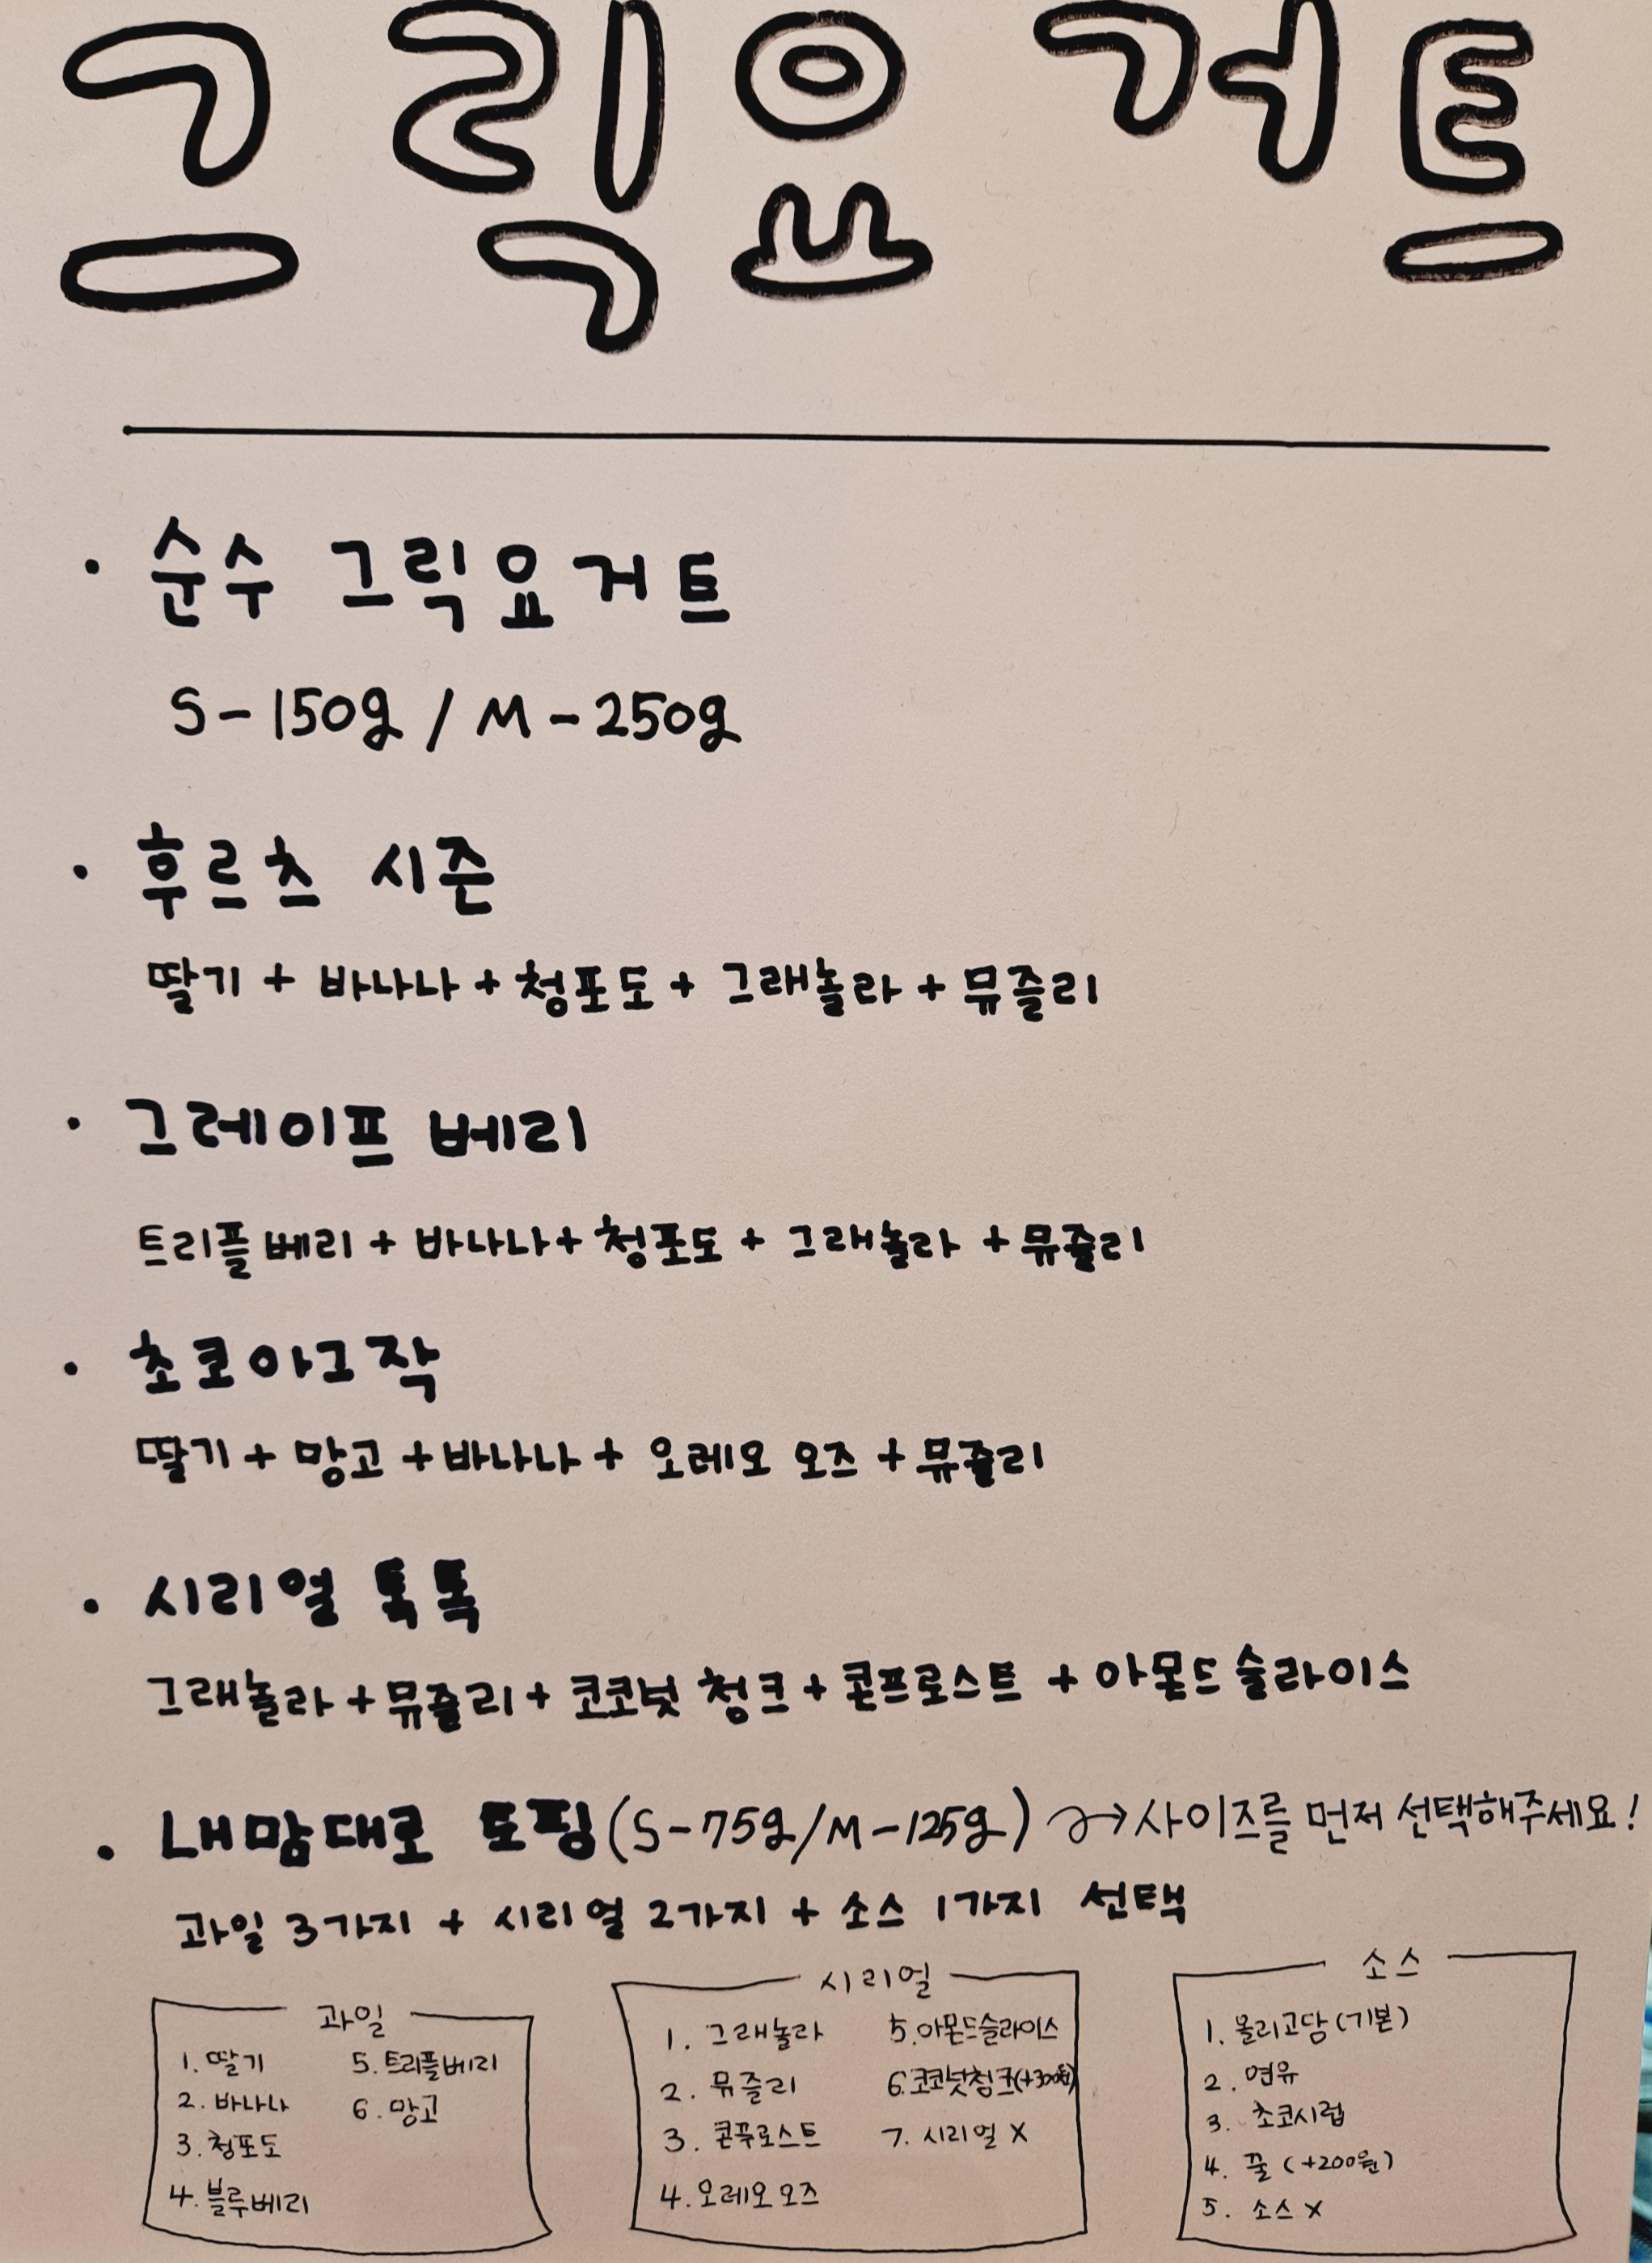 그릭요거트
· 순수 그릭요거트
S-150g / M-250g
· 후르츠 시즌
딸기 + 바나나 + 청포도 + 그래놀라 + 뮤즐리
· 그레이프 베리
트리플베리 + 바나나 + 청포도 + 그래놀라 + 뮤즐리
· 초코아그작
딸기 + 망고 + 바나나 + 오레오 오즈 + 뮤즐리
· 시리얼 톡톡
그래놀라 + 뮤즐리 + 코코넛 청크 + 콘프로스트 + 아몬드 슬라이스
· 내맘대로 토핑 (S-75g/M-125g) → 사이즈를 먼저 선택해주세요!
과일 3가지 + 시리얼 2가지 + 소스 1가지 선택
과일
1. 딸기
2. 바나나
3. 청포도
4. 블루베리
5. 트리플베리
6. 망고
시리얼
1. 그래놀라
2. 뮤즐리
3. 콘푸로스트
4. 오레오오즈
5. 아몬드슬라이스
6. 코코넛청크(+300원)
7. 시리얼 X
소스
1. 올리고당(기본)
2. 연유
3. 초코시럽
4. 꿀 (+200원)
5. 소스 X